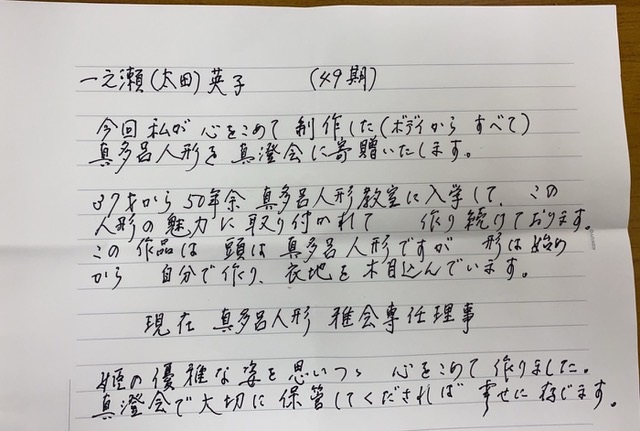 一之瀬(太田)英子 (49期)
今回私が心をこめて制作した(ボディからすべて)
真多呂人形を真澄会に寄贈いたします。
37才から50年余 真多呂人形教室に入学して、この
人形の魅力に取り付かれて 作り続けております。
この作品は 頭は真多呂人形ですが 形は始め
から 自分で作り、衣地を木目込んでいます。
現在 真多呂人形 雅会専任理事
姫の優雅な姿を思いつゝ 心をこめて作りました。
真澄会で大切に保管してくだされば幸せに存じます。